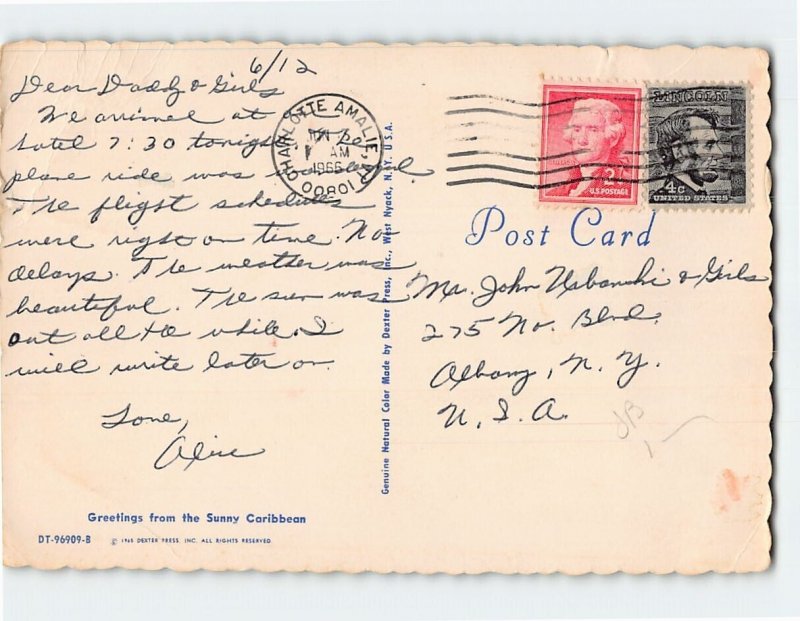 6/12
Dear Daddy & Girls
We arrived at
hotel 7:30 tonight. The
plane ride was wonderful.
The flight schedules
were right on time. No
delays. The weather was
beautiful. The sun was
out all the while. I
will write later on.
Love,
Greetings from the Sunny Caribbean
DT-96909-B
© 1965 DEXTER PRESS, INC. ALL RIGHTS RESERVED
Genuine Natural Color Made by Dexter Press, Inc., West Nyack, N.Y. U.S.A.
CHARLOTTE AMALIE,
AM
1966
00801
2
U.S. POSTAGE
LINCOLN
4c
UNITED STATES
Post Card
Mr. John & Girls
275 No. Blvd.
Albany, N. Y.
U. S. A.